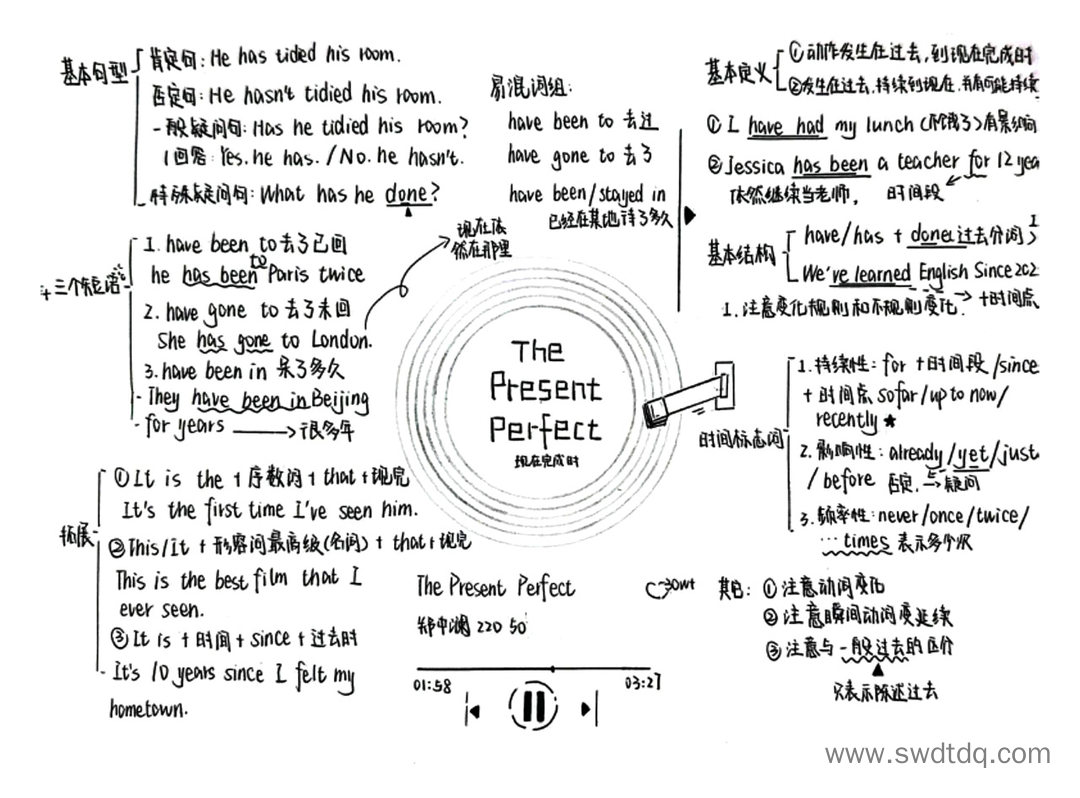 基本句型
肯定句: He has tided his room.
否定句: He hasn't tidied his room.
一般疑问句: Has he tidied his room?
回答: Yes, he has. / No, he hasn't.
特殊疑问句: What has he done?
易混词组:
have been to 去过
have gone to 去了
have been/stayed in
已经在某地待了多久
基本定义
①动作发生在过去,到现在完成时
②发生在过去,持续到现在,并有可能持续
① I have had my lunch (不饿了) 有影响
② Jessica has been a teacher for 12 yea
依然继续当老师, 时间段
基本结构
have/has + done(过去分词)
We've learned English Since 202
+时间点
1. 注意变化规则和不规则变化.
三个短语
1. have been to 去了已回
he has been to Paris twice
2. have gone to 去了未回
She has gone to London.
现在依
然在那里
3. have been in 呆了多久
They have been in Beijing
for years → 很多年
The
Present
Perfect
现在完成时
时间标志词
1. 持续性: for +时间段 /since
+时间点 so far/up to now/
recently ★
2. 影响性: already/yet/just
/before 否定, → 疑问
3. 频率性: never/once/twice/
… times 表示多个次
拓展
① It is the +序数词+that+现完
It's the first time I've seen him.
② This/It +形容词最高级(名词)+that+现完
This is the best film that I
ever seen.
③ It is +时间+since+过去时
It's 10 years since I felt my
hometown.
The Present Perfect
220 50
01:58
03:27
其它: ①注意动词变化
②注意瞬间动词变延续
③注意与一般过去的区分
只表示陈述过去
www.swdtdq.com